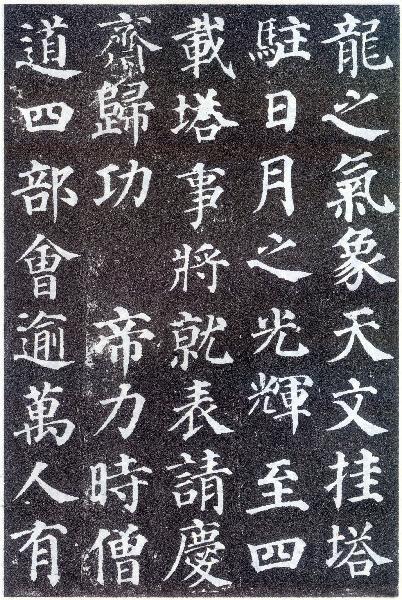 龍之氣象天文挂塔
駐日月之光輝至四
載塔事將就表請慶
齋歸功 帝力時僧
道四部會逾萬人有